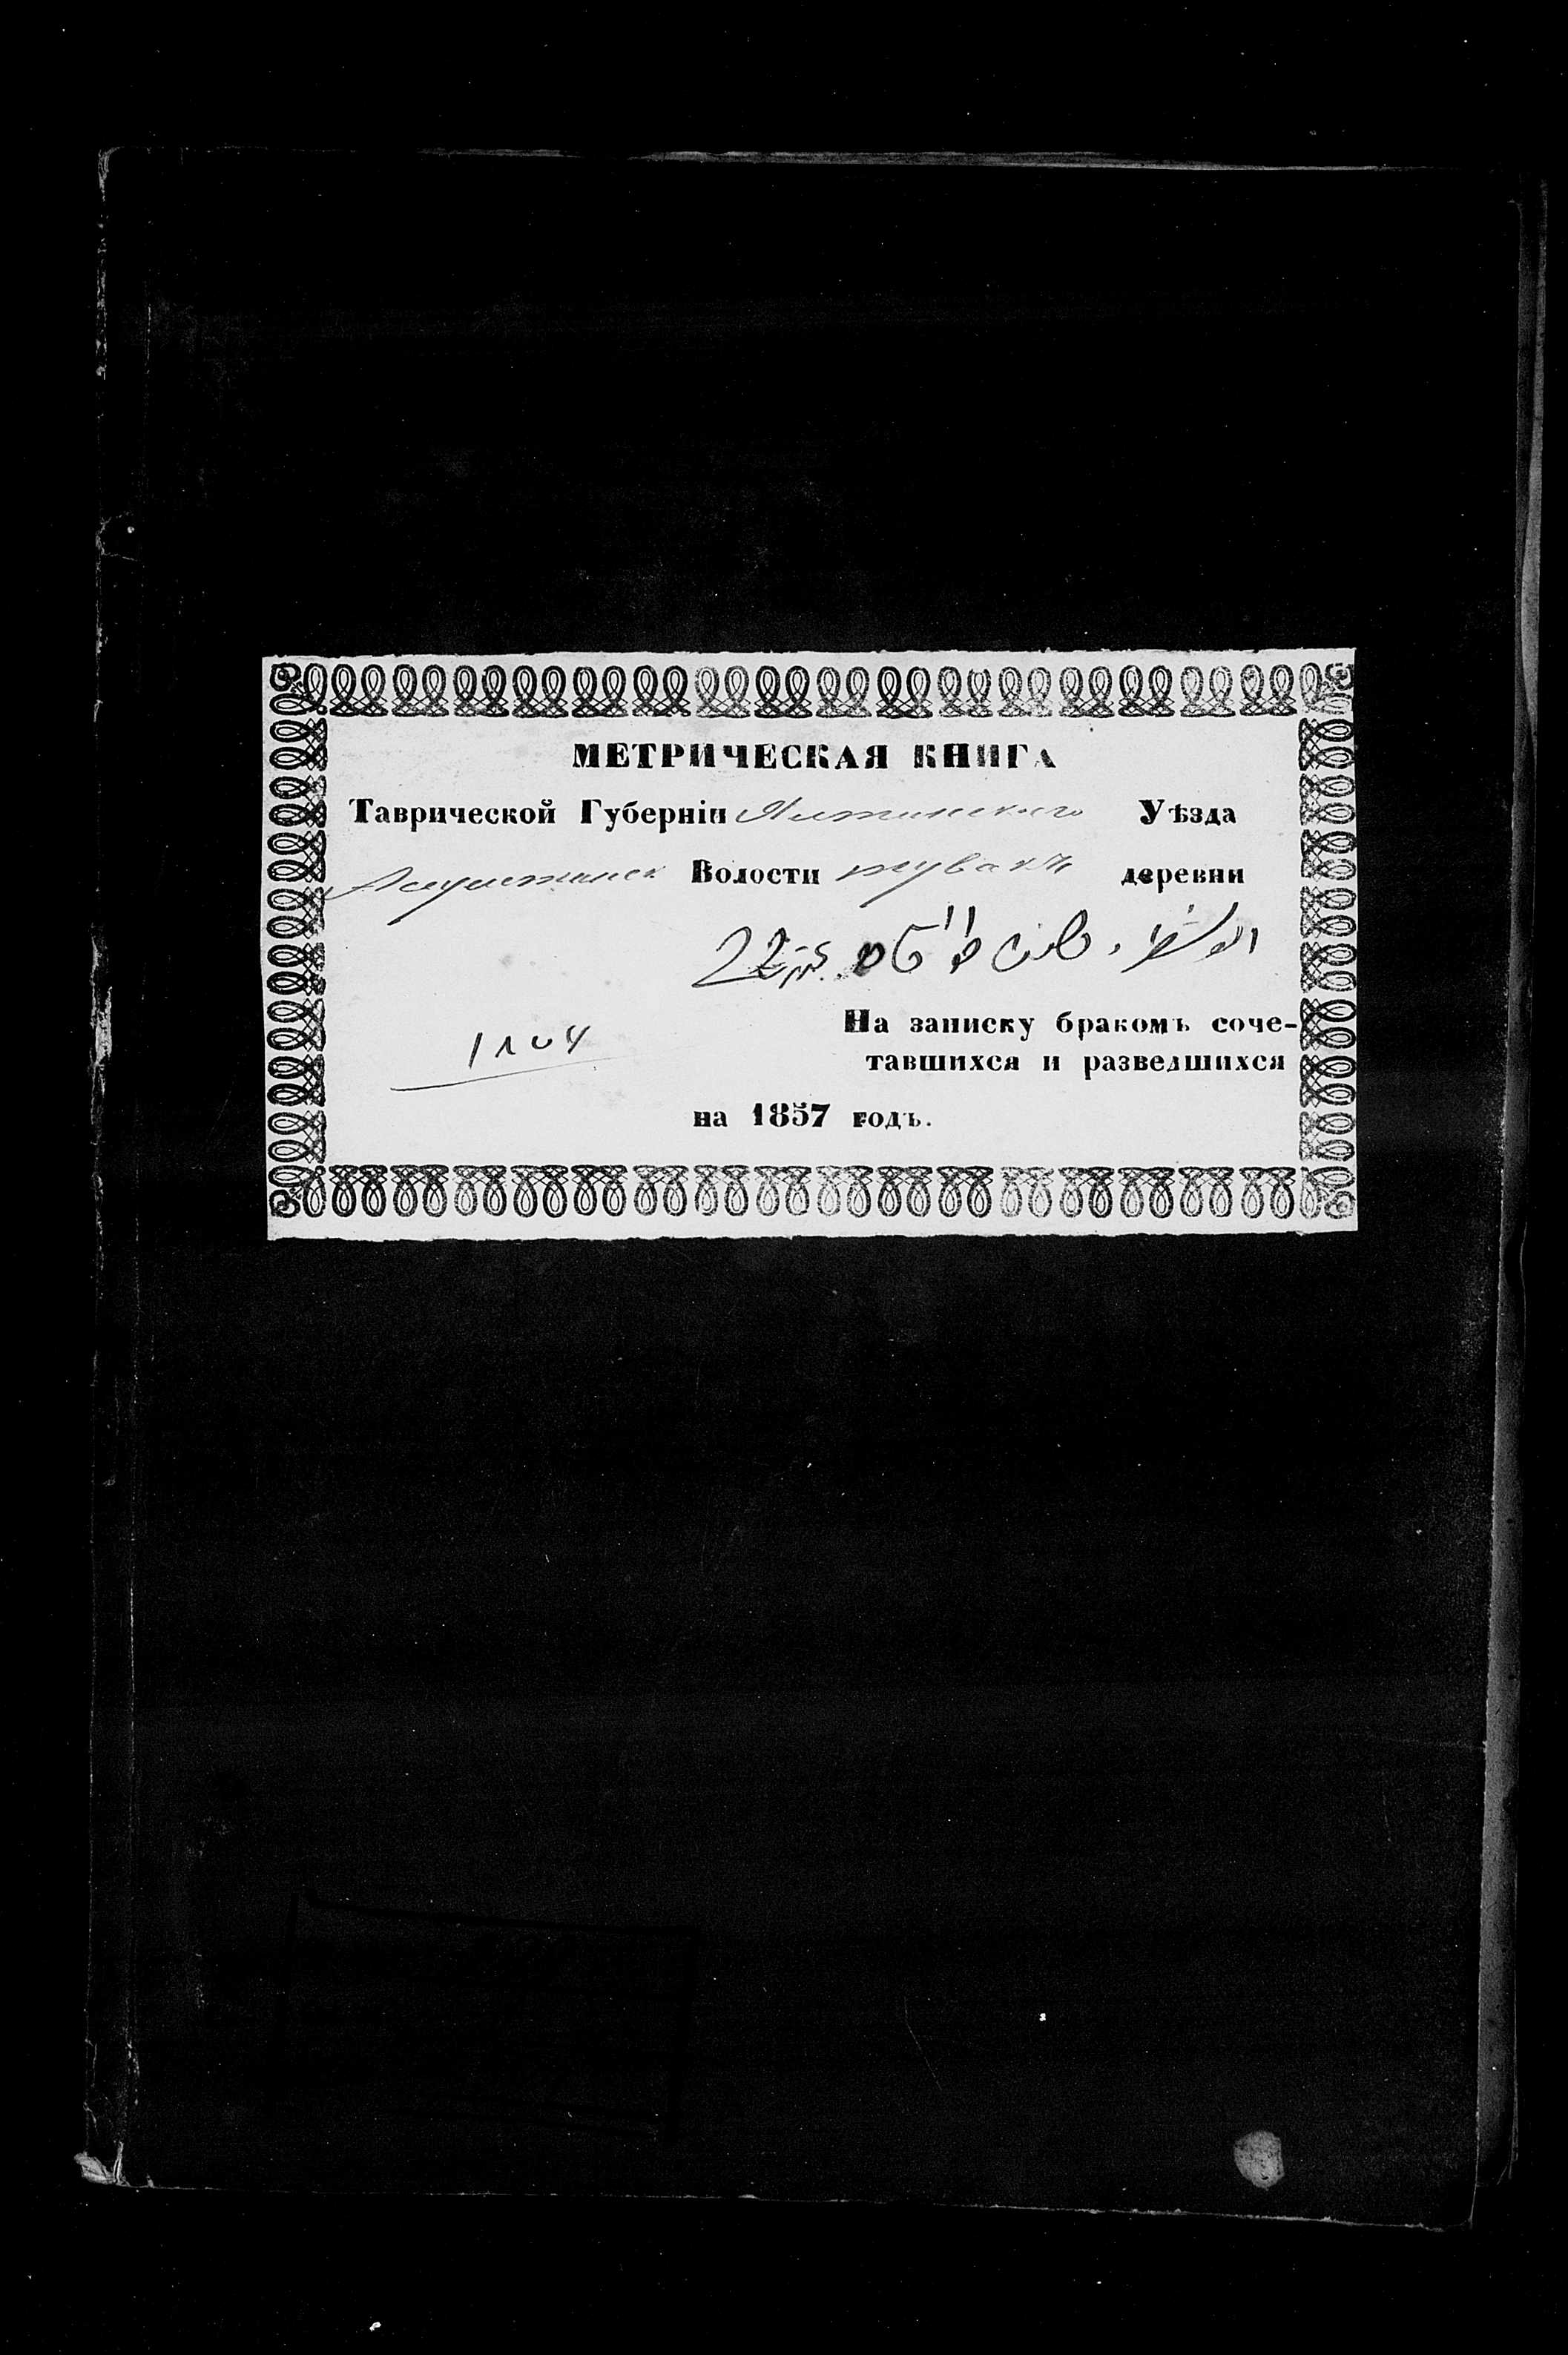 МЕТРИЧЕСКАЯ КНИГА
Таврической Губерніи Ялтинского Уѣзда
Алуштинск Волости тувакъ деревни
На записку бракомъ соче-
тавшихся и разведшихся
на 1857 годъ.